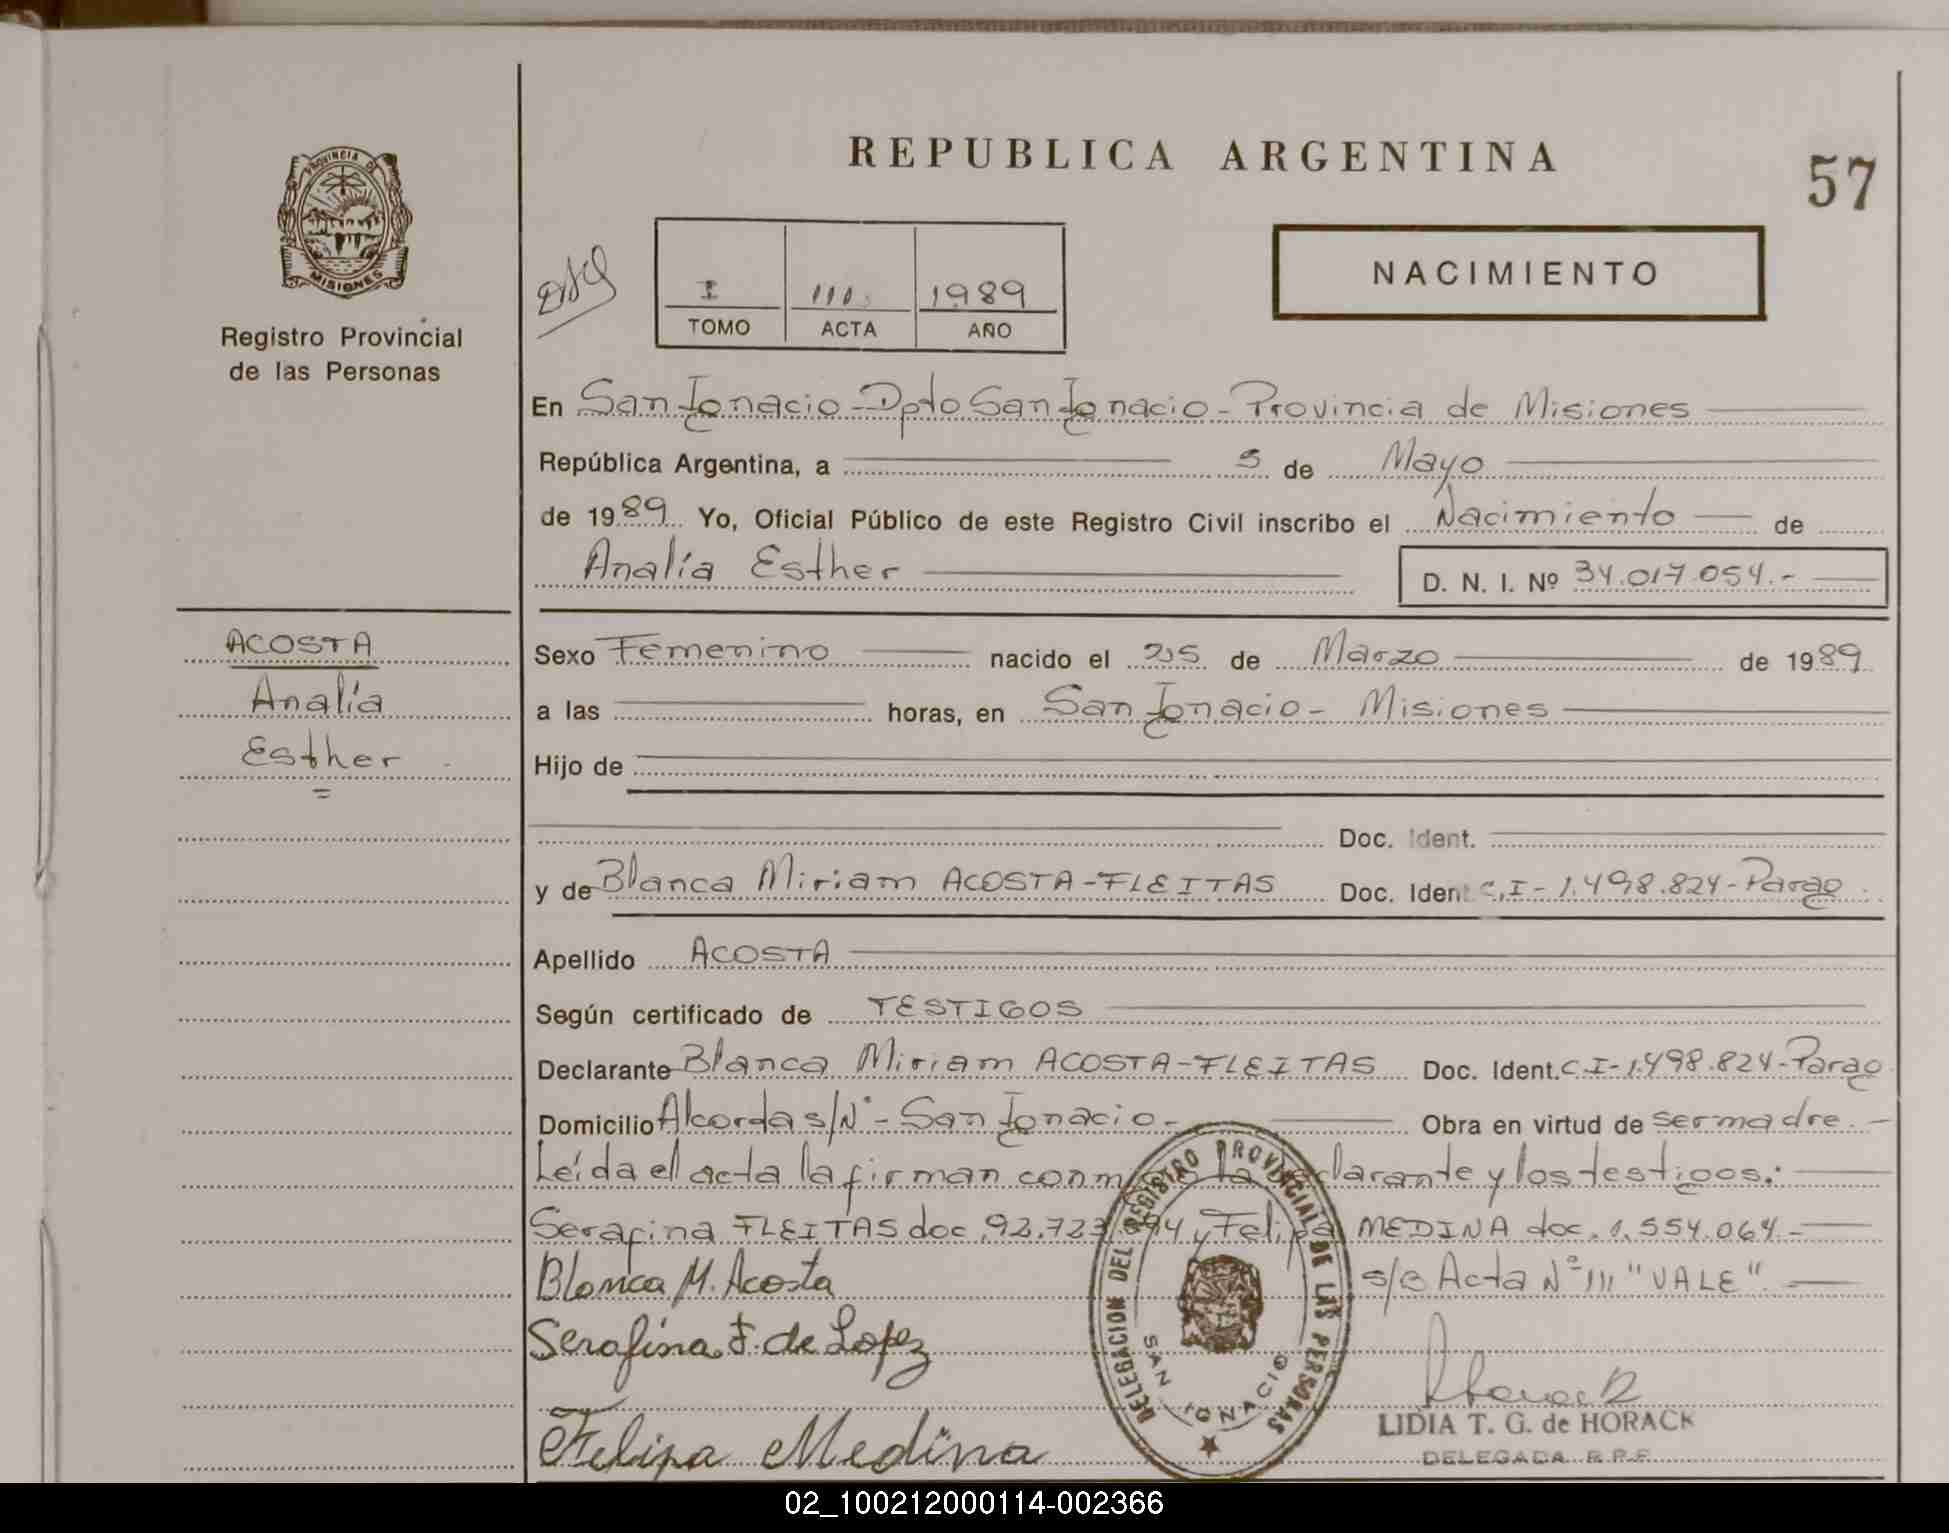 REPUBLICA ARGENTINA
57
PROVINCIA DE
MISIONES
Registro Provincial
de las Personas
I 111 1989
TOMO ACTA AÑO
NACIMIENTO
En San Ignacio - Dpto San Ignacio - Provincia de Misiones
República Argentina, a 5 de Mayo
de 1989 Yo, Oficial Público de este Registro Civil inscribo el Nacimiento de
Analía Esther D. N. I. Nº 34.017.054.-
ACOSTA
Analía
Esther
=
Sexo Femenino nacido el 25 de Marzo de 1989
a las horas, en San Ignacio - Misiones
Hijo de
Doc. Ident.
y de Blanca Miriam ACOSTA-FLEITAS Doc. Ident C.I-1.498.824-Parag
Apellido ACOSTA
Según certificado de TESTIGOS
Declarante Blanca Miriam ACOSTA-FLEITAS Doc. Ident. C.I-1.498.824-Parag
Domicilio Alcorda s/N°- San Ignacio - Obra en virtud de ser madre.-
Leída el acta la firman conmigo la declarante y los testigos:
Serafina FLEITAS doc. y Felipa MEDINA doc. 1.554.064.-
Blanca M. Acosta s/b Acta Nº 111 "VALE".
Serafina F. de Lopez
Felipa Medina
DELEGACION DEL REGISTRO PROVINCIAL DE LAS PERSONAS
SAN IGNACIO
LIDIA T. G. de HORACK
DELEGADA R.P.P.
02_100212000114-002366